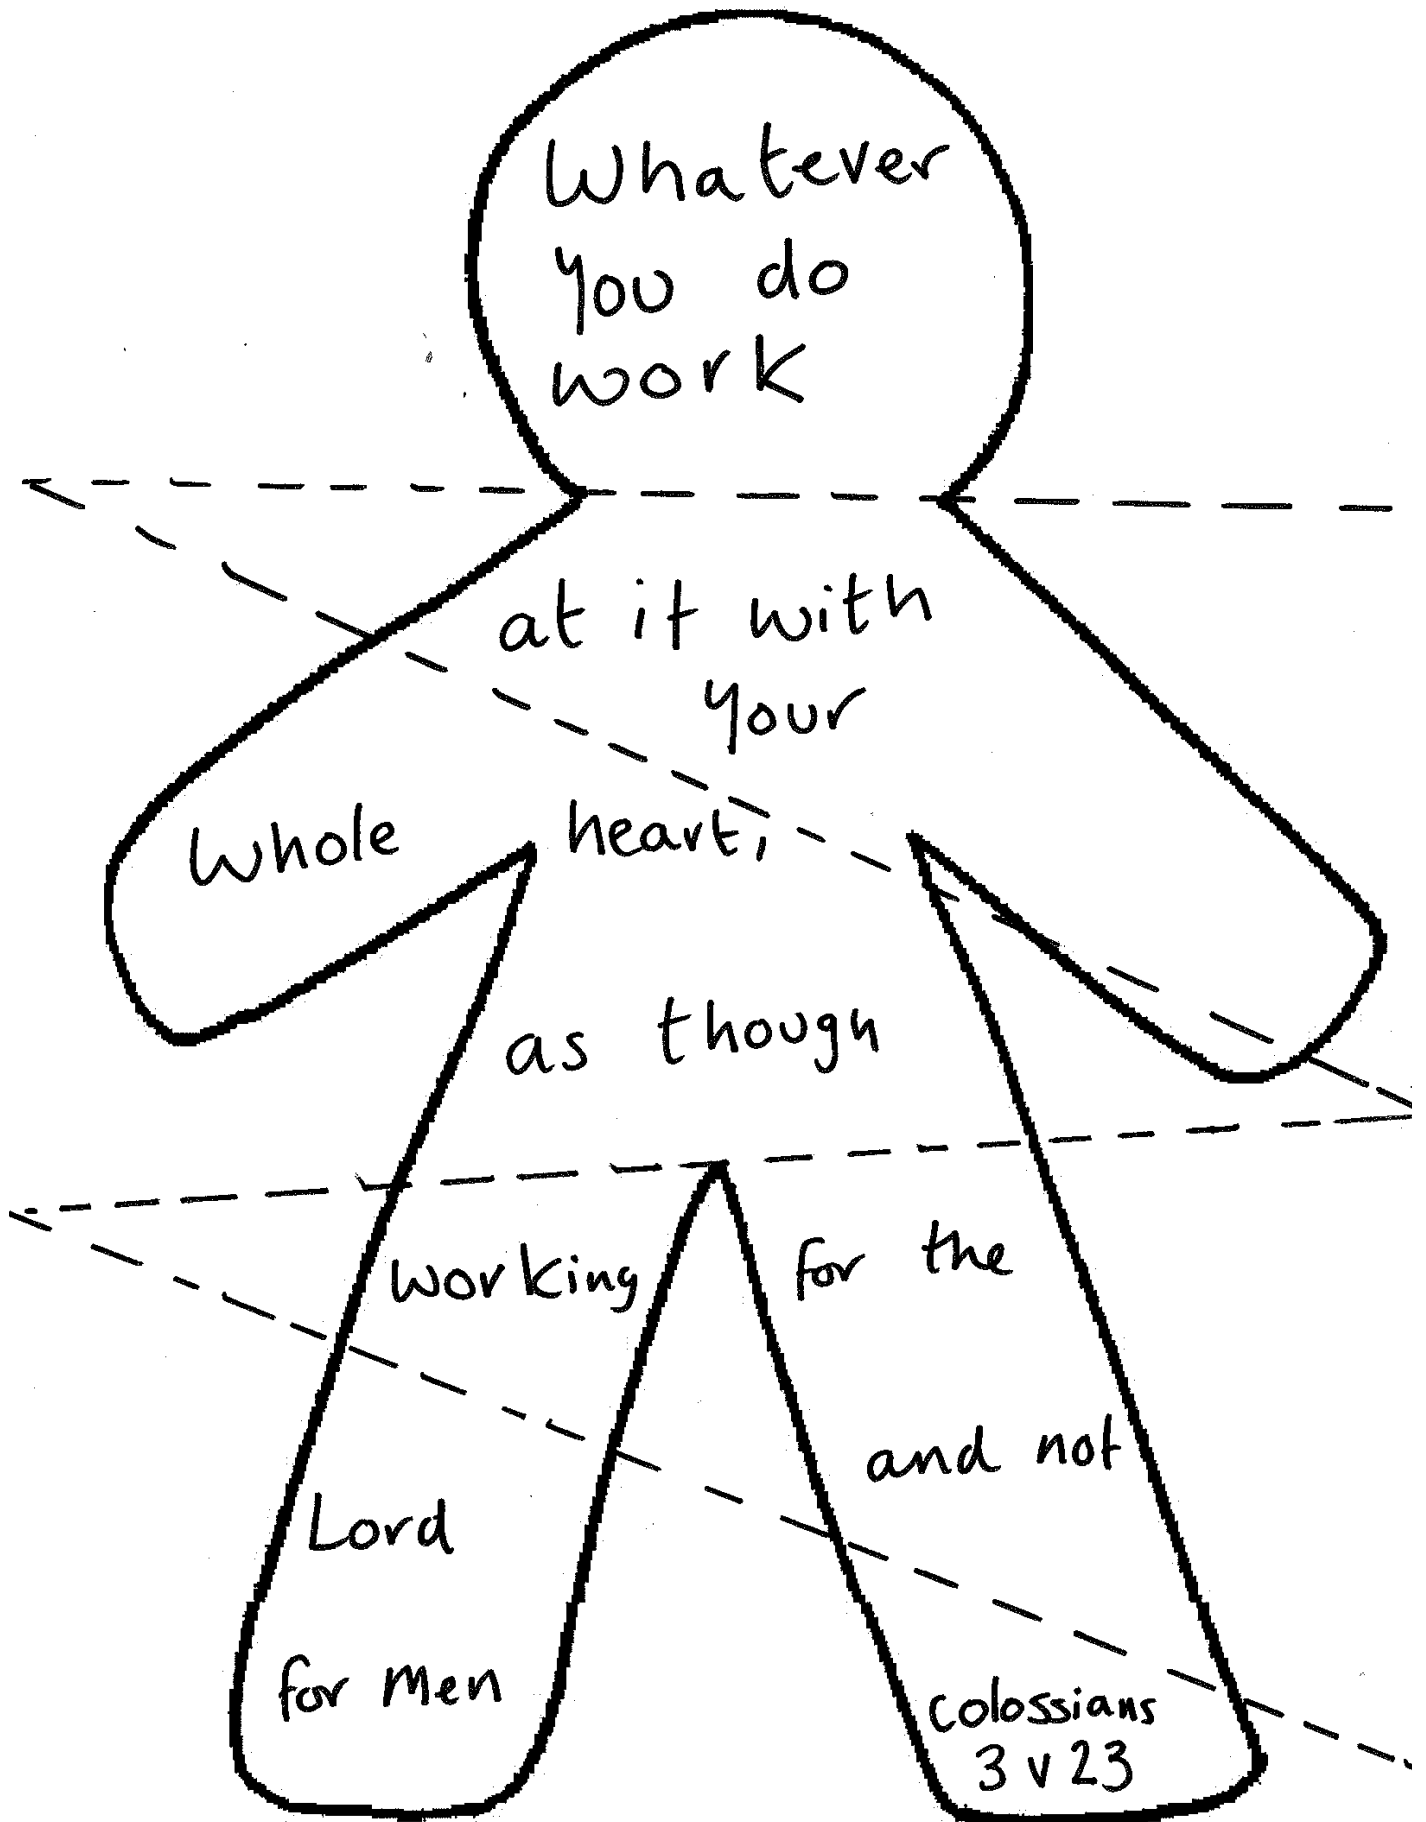 Whatever
you do
work
at it with
your
whole heart,
as though
working for the
Lord and not
for men
Colossians
3 v 23